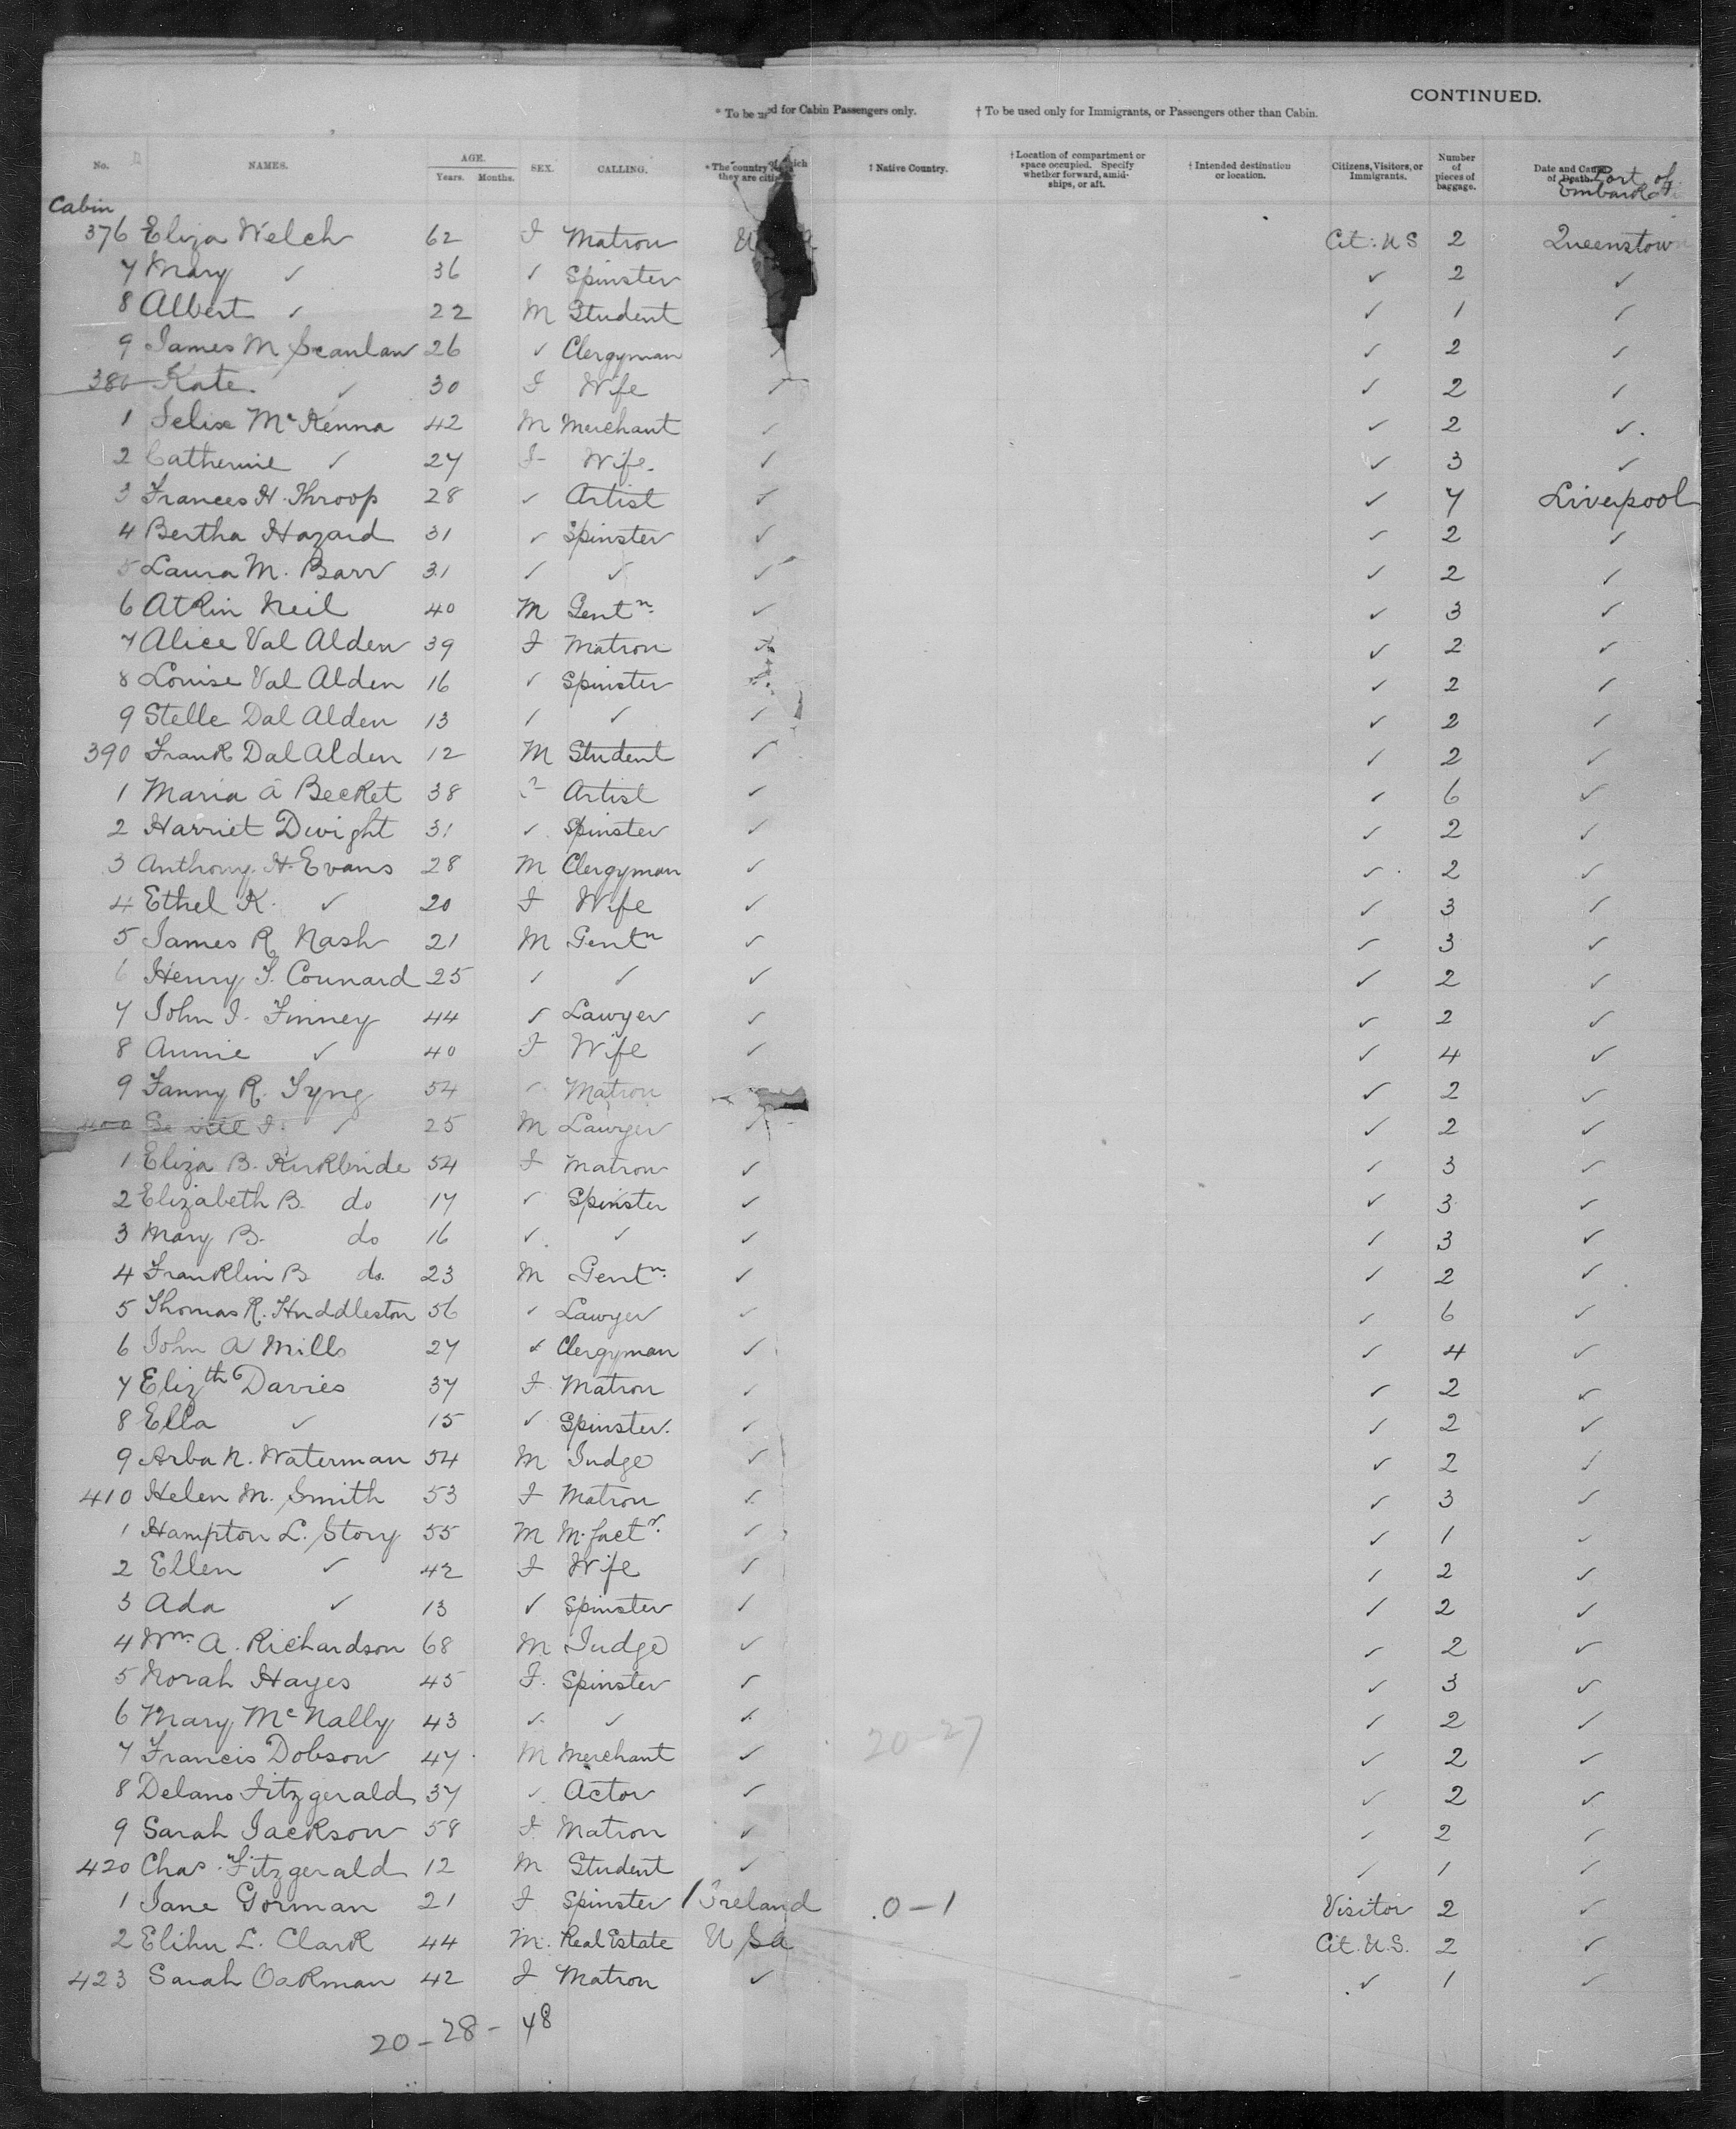 CONTINUED.
* To be used for Cabin Passengers only. † To be used only for Immigrants, or Passengers other than Cabin.
No. NAMES. AGE. Years. Months. SEX. CALLING. *The country of which they are citizens † Native Country. †Location of compartment or space occupied. Specify whether forward, amidships, or aft. †Intended destination or location. Citizens, Visitors, or Immigrants. Number of pieces of baggage. Date and Cause of Death. Port of
Cabin
376 Eliza Welch 62 F Matron Cit: U S 2 Queenstown
7 Mary ✓ 36 ✓ Spinster ✓ 2 ✓
8 Albert ✓ 22 M Student ✓ 1 ✓
9 James M Scanlan 26 ✓ Clergyman ✓ ✓ 2 ✓
380 Kate ✓ 30 F Wife ✓ ✓ 2 ✓
1 Felix McKenna 42 M Merchant ✓ ✓ 2 ✓
2 Catherine ✓ 27 F Wife ✓ ✓ 3 ✓
3 Frances H. Throop 28 ✓ Artist ✓ ✓ 7 Liverpool
4 Bertha Hazard 31 ✓ Spinster ✓ ✓ 2 ✓
5 Laura M. Barr 31 ✓ ✓ ✓ ✓ 2 ✓
6 Atkin Neil 40 M Gentn. ✓ ✓ 3 ✓
7 Alice Val Alden 39 F Matron ✓ ✓ 2 ✓
8 Louise Val Alden 16 ✓ Spinster ✓ ✓ 2 ✓
9 Stelle Dal Alden 13 ✓ ✓ ✓ ✓ 2 ✓
390 Frank Dal Alden 12 M Student ✓ ✓ 2 ✓
1 Maria a Becket 38 F Artist ✓ ✓ 6 ✓
2 Harriet Dwight 31 ✓ Spinster ✓ ✓ 2 ✓
3 Anthony H. Evans 28 M Clergyman ✓ ✓ 2 ✓
4 Ethel K. ✓ 20 F Wife ✓ ✓ 3 ✓
5 James R Nash 21 M Gentn ✓ ✓ 3 ✓
6 Henry F. Counard 25 ✓ ✓ ✓ ✓ 2 ✓
7 John J. Finney 44 ✓ Lawyer ✓ ✓ 2 ✓
8 Annie ✓ 40 F Wife ✓ ✓ 4 ✓
9 Fanny R. Tyng 54 ✓ Matron ✓ 2 ✓
400 ✓ 25 M Lawyer ✓ ✓ 2 ✓
1 Eliza B. Kirkbride 54 F Matron ✓ ✓ 3 ✓
2 Elizabeth B. do 17 ✓ Spinster ✓ ✓ 3 ✓
3 Mary B. do 16 ✓ ✓ ✓ ✓ 3 ✓
4 Franklin B do. 23 M Gentn. ✓ ✓ 2 ✓
5 Thomas R. Huddleston 56 ✓ Lawyer ✓ ✓ 6 ✓
6 John A Mills 27 ✓ Clergyman ✓ ✓ 4 ✓
7 Elizth Davies 37 F Matron ✓ ✓ 2 ✓
8 Ella ✓ 15 ✓ Spinster. ✓ ✓ 2 ✓
9 Arba N. Waterman 54 M Judge ✓ ✓ 2 ✓
410 Helen M. Smith 53 F Matron ✓ ✓ 3 ✓
1 Hampton L. Story 55 M M.factr. ✓ ✓ 1 ✓
2 Ellen ✓ 42 F Wife ✓ ✓ 2 ✓
3 Ada ✓ 13 ✓ Spinster ✓ ✓ 2 ✓
4 Wm. A. Richardson 68 M Judge ✓ ✓ 2 ✓
5 Norah Hayes 45 F. Spinster ✓ ✓ 3 ✓
6 Mary McNally 43 ✓ ✓ ✓ ✓ 2 ✓
7 Francis Dobson 47 M Merchant ✓ 20-27 ✓ 2 ✓
8 Delano Fitzgerald 37 ✓ Actor ✓ ✓ 2 ✓
9 Sarah Jackson 58 F Matron ✓ ✓ 2 ✓
420 Chas. Fitzgerald 12 M Student ✓ ✓ 1 ✓
1 Jane Gorman 21 F Spinster / Ireland 0-1 Visitor 2 ✓
2 Elihu L. Clark 44 M. Real Estate U Sa Cit. U.S. 2 ✓
423 Sarah Oakman 42 F Matron ✓ ✓ 1 ✓
20-28-48